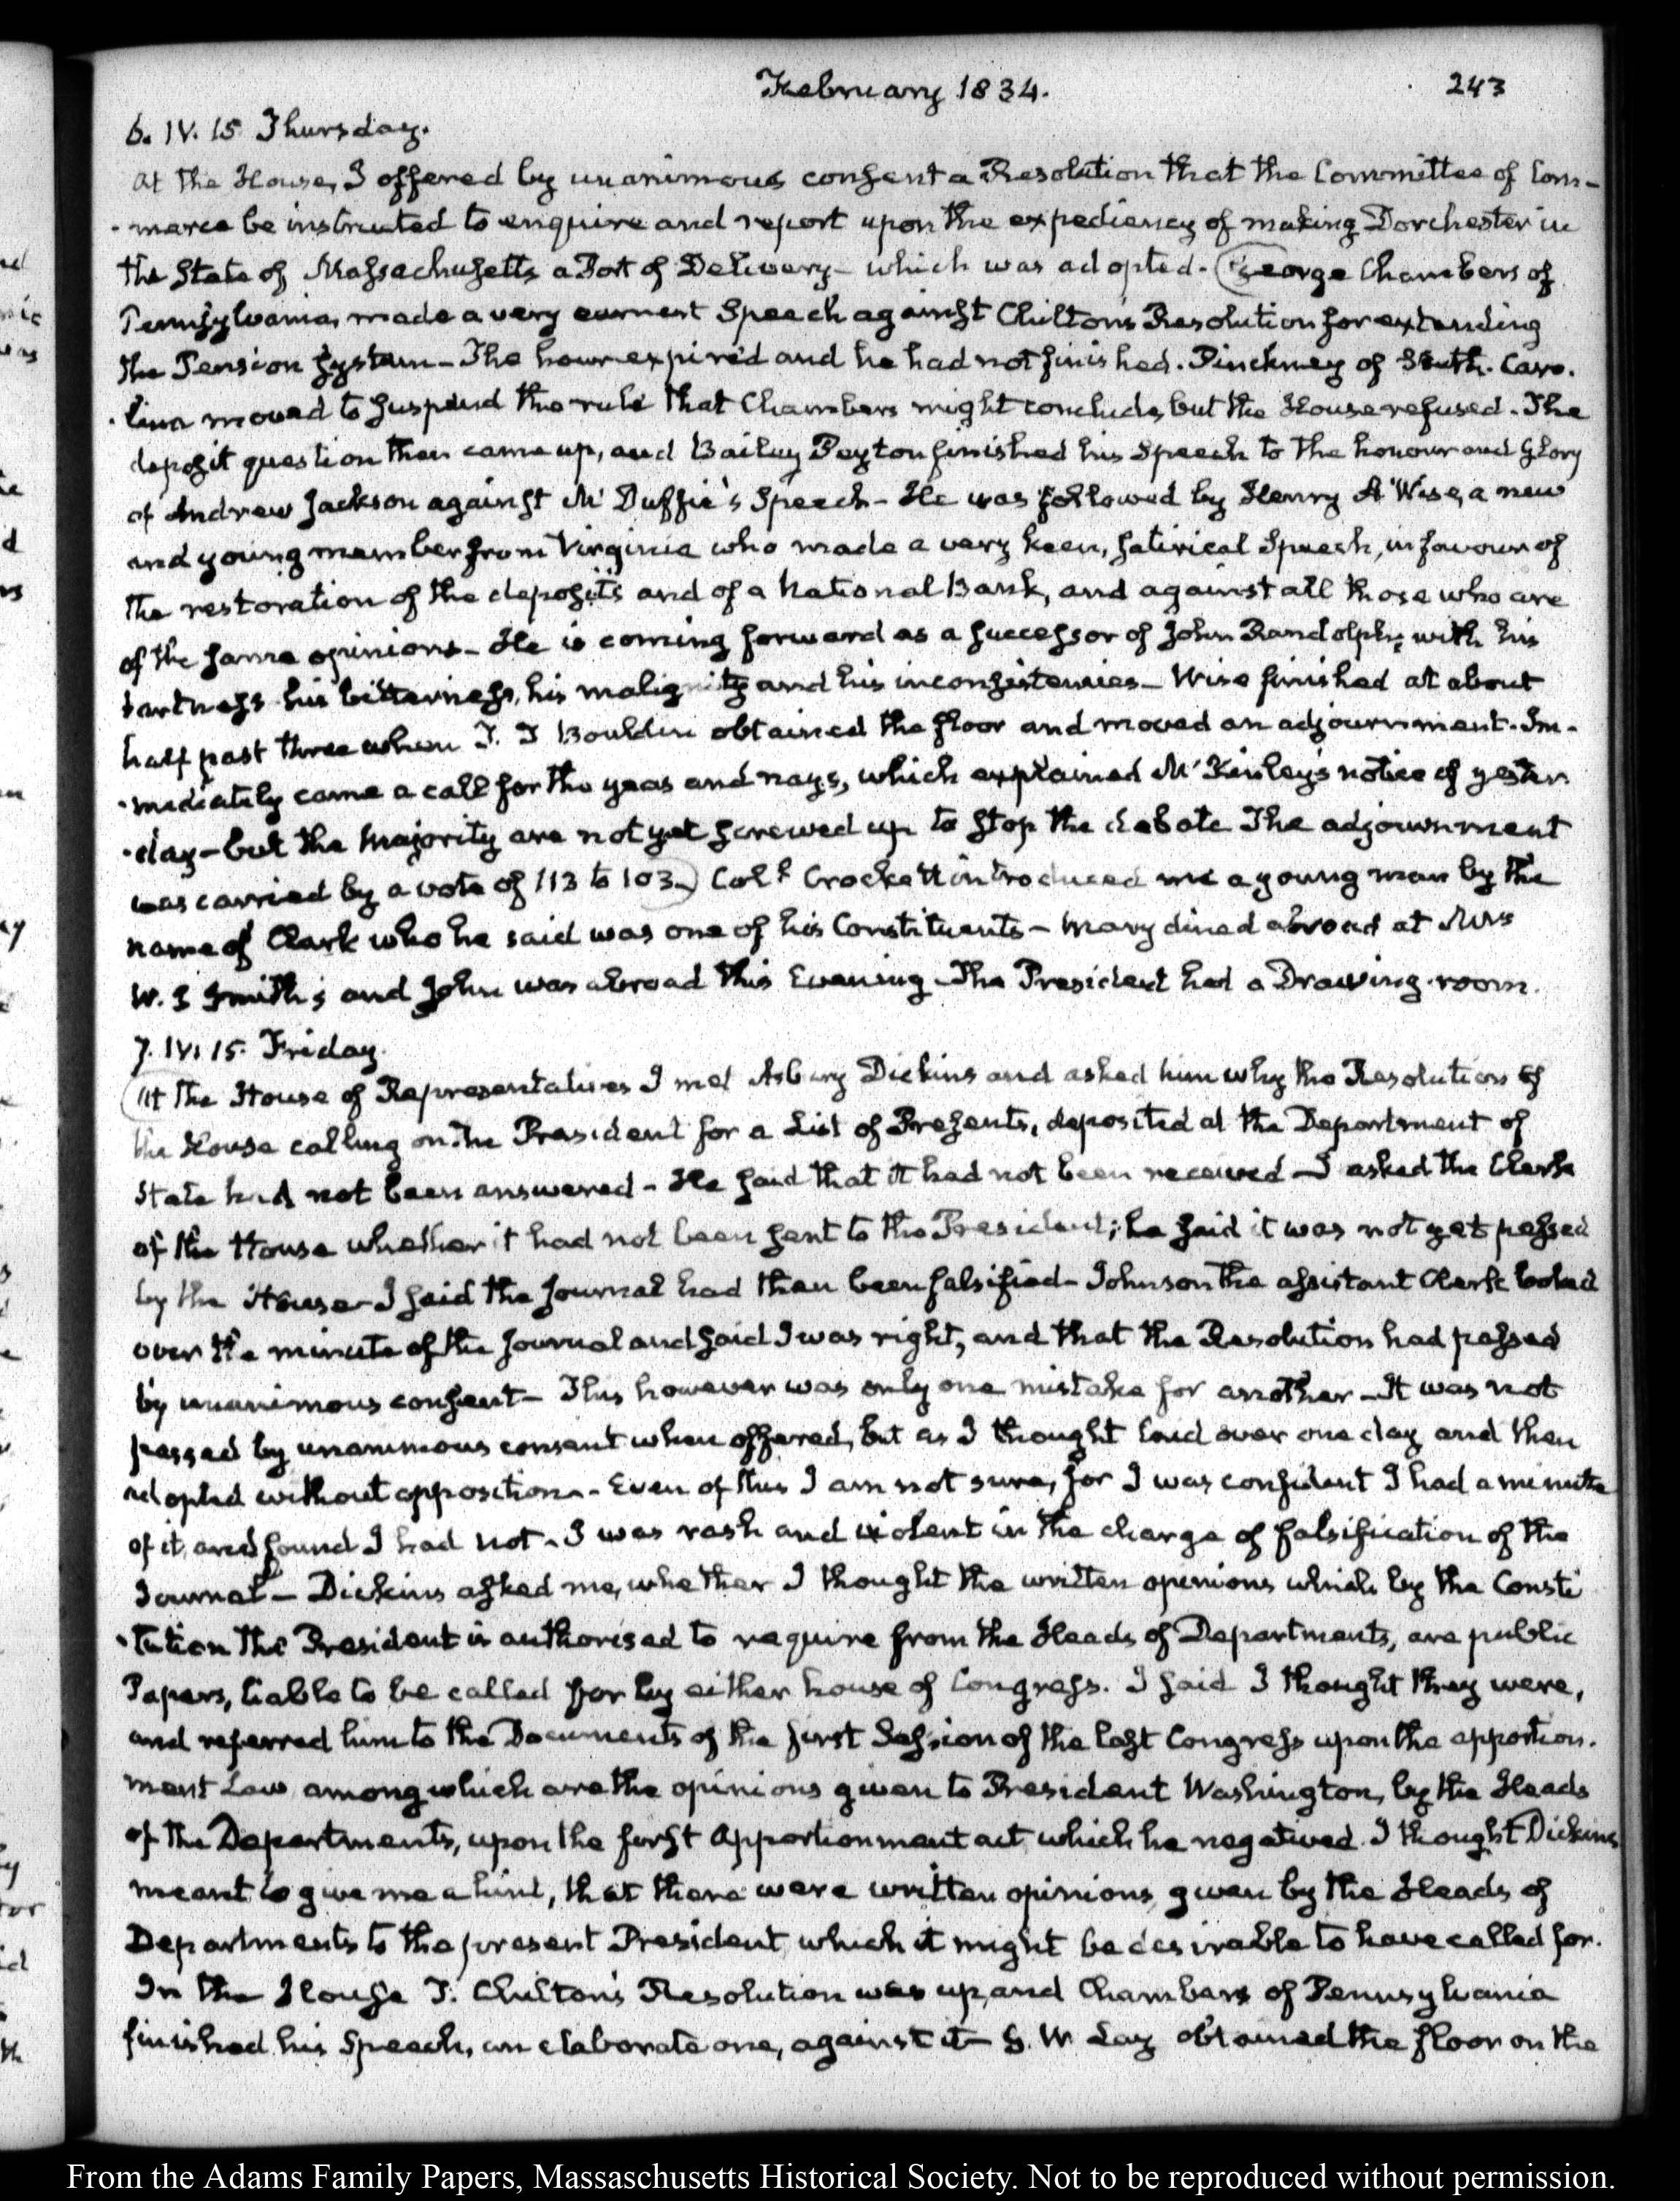 February 1834.
243
6. IV. 15 Thursday.
At the House, I offered by unanimous consent a Resolution that the Committee of Com-
-merce be instructed to enquire and report upon the expediency of making Dorchester in
the State of Massachusetts a Port of Delivery – which was adopted. George Chambers of
Pennsylvania, made a very earnest Speech against Chilton's Resolution for extending
the Pension System – The hour expired and he had not finished. Pinckney of South. Caro-
-lina moved to suspend the rule that Chambers might conclude, but the House refused. The
deposit question then came up, and Bailey Peyton finished his Speech to the honour and Glory
of Andrew Jackson against McDuffie's Speech – He was followed by Henry A Wise, a new
and young member from Virginia who made a very keen, satirical Speech, in favour of
the restoration of the deposits and of a National Bank, and against all those who are
of the same opinions – He is coming forward as a successor of John Randolph; with his
tartness his bitterness, his malignity and his inconsistencies – Wise finished at about
half past three when T. T Bouldin obtained the floor and moved an adjournment. Im-
-mediately came a call for the yeas and nays, which explained McKinley's notice of yester-
-day – but the Majority are not yet screwed up to stop the debate The adjournment
was carried by a vote of 113 to 103. Coll Crockett introduced me a young man by the
name of Clark who he said was one of his Constituents – Mary dined abroad at Mrs
W. S Smith's and John was abroad this Evening – The President had a Drawing-room.
7. IV. 15. Friday.
At the House of Representatives I met Asbury Dickins and asked him why the Resolution of
the House calling on the President for a List of Presents, deposited at the Department of
State had not been answered – He said that it had not been received – I asked the Clerk
of the House whether it had not been sent to the President; he said it was not yet passed
by the House – I said the Journal had then been falsified – Johnson the assistant Clerk looked
over the minute of the Journal and said I was right, and that the Resolution had passed
by unanimous consent – This however was only one mistake for another – It was not
passed by unanimous consent when offered, but as I thought laid over one day and then
adopted without opposition. – Even of this I am not sure, for I was confident I had a minute
of it, and found I had not. I was rash and violent in the charge of falsification of the
Journal – Dickins asked me, whether I thought the written opinions which by the Consti
-tution the President is authorised to require from the Heads of Departments, are public
Papers, liable to be called for by either house of Congress. I said I thought they were,
and referred him to the Documents of the first Session of the last Congress upon the apportion-
ment Law among which are the opinions given to President Washington, by the Heads
of the Departments, upon the first Apportionment act which he negatived. I thought Dickins
meant to give me a hint, that there were written opinions, given by the Heads of
Departments to the present President, which it might be desirable to have called for.
In the House T. Chilton's Resolution was up, and Chambers of Pennsylvania
finished his Speech, an elaborate one, against it – G. W Lay obtained the floor on the
From the Adams Family Papers, Massachusetts Historical Society. Not to be reproduced without permission.